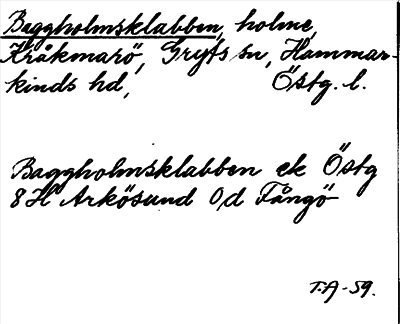 Baggholmsklabben, holme,
Kråkmarö, Gryts sn, Hammar-
kinds hd, Östg. l.
Baggholmsklabben ek Östg
8H Arkösund 0d Fångö
T.A-59.